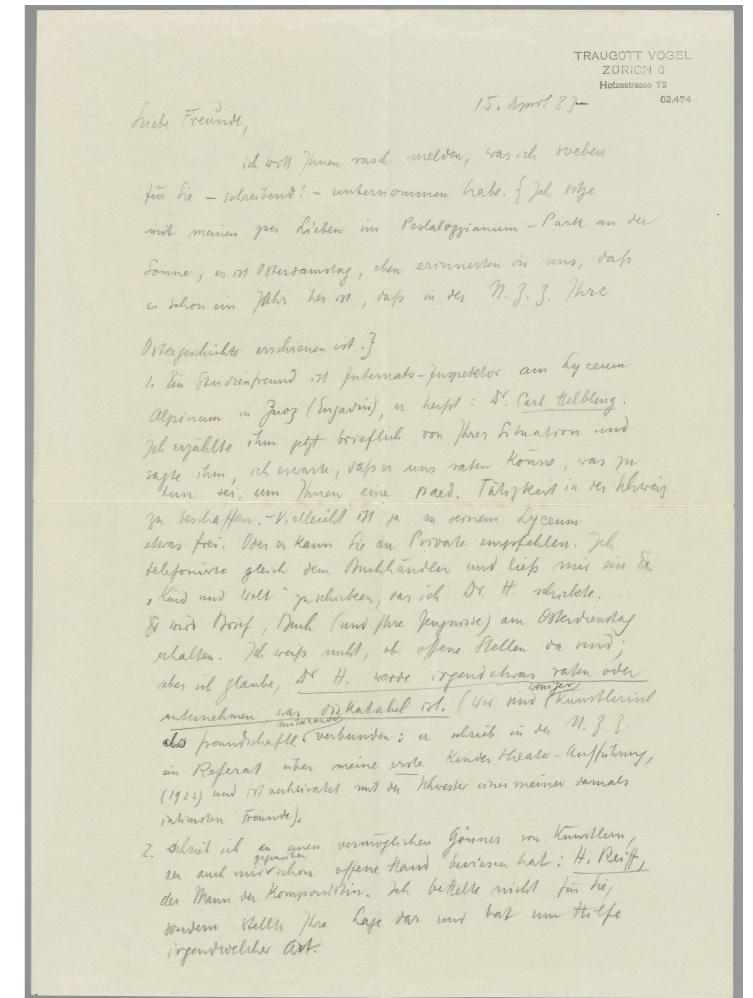 TRAUGOTT VOGEL
ZÜRICH 6
Hotzestrasse 72
62.474
15. April 33
Liebe Freunde,
ich will Ihnen rasch melden, was ich soeben
für Sie – schreibend! – unternommen habe. { Ich sitze
mit meinen zwei Lieben im Pestalozzianum-Park an der
Sonne, es ist Ostersamstag, eben erinnerten wir uns, daß
es schon ein Jahr her ist, daß in der N. Z. Z. Ihre
Ostergeschichte erschienen ist. }
1. Ein Studienfreund ist Internats-Inspektor am Lyceum
Alpinum in Zuoz (Engadin), er heißt: Dr. Carl Helbling.
Ich erzählte ihm jetzt brieflich von Ihrer Situation und
sagte ihm, ich erwarte, daß er uns raten könne, was zu
tun sei, um Ihnen eine paed. Tätigkeit in der Schweiz
zu beschaffen. – Vielleicht ist ja an seinem Lyceum
etwas frei. Oder er kann Sie an Private empfehlen. Ich
telefonierte gleich dem Buchhändler und ließ mir ein Ex
„Kind und Welt" zuschicken, das ich Dr. H. schickte.
Er wird Brief, Buch (und Ihre Zeugnisse) am Osterdienstag
erhalten. Ich weiß nicht, ob offene Stellen da sind;
aber ich glaube, Dr H. werde irgend etwas raten oder
unternehmen, was diskutabel ist. (Wir sind weniger künstlerisch
als freundschaftl. miteinander verbunden: er schrieb in der N. Z. Z.
ein Referat über meine erste Kindertheater-Aufführung,
(1922) und ist verheiratet mit der Schwester eines meiner damals
intimsten Freunde).
2. Schrieb ich an einen vermöglichen Gönner von Künstlern,
der auch mir gegenüber schon offene Hand bewiesen hat: H. Reiff,
der Mann der Komponistin. Ich bettelte nicht für Sie,
sondern stellte Ihre Lage dar und bat um Hilfe
irgendwelcher Art.